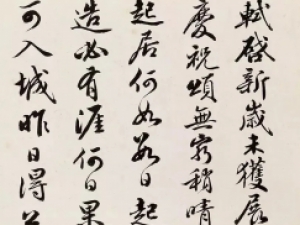 軾啓新歲未獲展
慶祝頌無窮稍晴
起居何如數日起
造必有涯何日果
可入城昨日得公